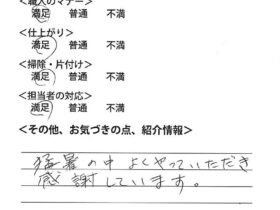 <職人のマナー>
満足 普通 不満
<仕上がり>
満足 普通 不満
<掃除・片付け>
満足 普通 不満
<担当者の対応>
満足 普通 不満
<その他、お気づきの点、紹介情報>
猛暑の中よくやっていただき
感謝しています。